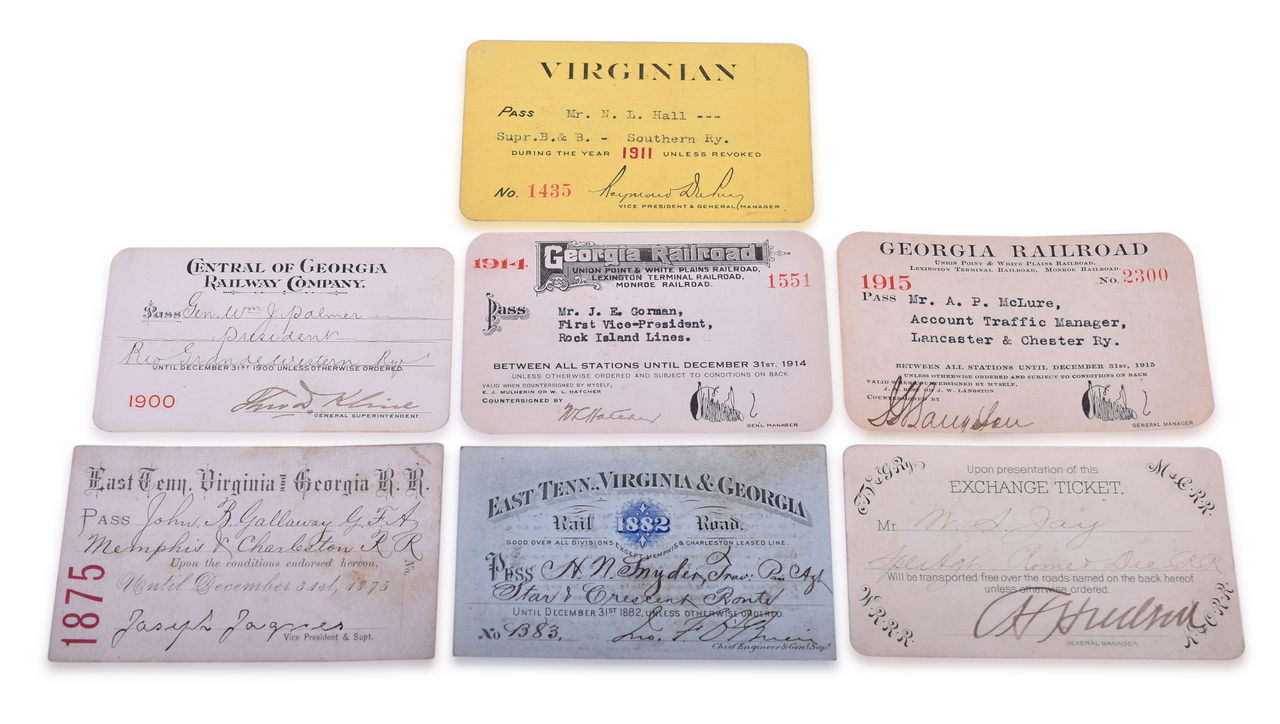 VIRGINIAN
PASS Mr. N. L. Hall ---
Supr.B.& B. - Southern Ry.
DURING THE YEAR 1911 UNLESS REVOKED
No. 1435
VICE PRESIDENT & GENERAL MANAGER
CENTRAL OF GEORGIA
RAILWAY COMPANY.
Pass Gen. Wm J. Palmer
President
Rio Grande Western Rwy
UNTIL DECEMBER 31ST 1900 UNLESS OTHERWISE ORDERED.
1900
Theo D Kline
GENERAL SUPERINTENDENT.
1914 Georgia Railroad
UNION POINT & WHITE PLAINS RAILROAD,
LEXINGTON TERMINAL RAILROAD,
MONROE RAILROAD.
1551
Pass Mr. J. E. Gorman,
First Vice-President,
Rock Island Lines.
BETWEEN ALL STATIONS UNTIL DECEMBER 31ST, 1914
UNLESS OTHERWISE ORDERED AND SUBJECT TO CONDITIONS ON BACK
VALID WHEN COUNTERSIGNED BY MYSELF,
E. J. MULHERIN OR W. L. HATCHER
COUNTERSIGNED BY
W L Hatcher
GEN'L MANAGER
GEORGIA RAILROAD
UNION POINT & WHITE PLAINS RAILROAD,
LEXINGTON TERMINAL RAILROAD, MONROE RAILROAD.
1915 No. 2300
PASS Mr. A. P. McLure,
Account Traffic Manager,
Lancaster & Chester Ry.
BETWEEN ALL STATIONS UNTIL DECEMBER 31st, 1915
UNLESS OTHERWISE ORDERED AND SUBJECT TO CONDITIONS ON BACK
VALID WHEN COUNTERSIGNED BY MYSELF,
OR J. W. LANGSTON.
COUNTERSIGNED BY
GENERAL MANAGER
East Tenn. Virginia and Georgia R. R.
PASS John. B. Gallaway G. F. A
Memphis & Charleston R R
Upon the conditions endorsed hereon,
No.
Until December 31st, 1875
1875
Joseph Jaques
Vice President & Supt.
EAST TENN., VIRGINIA & GEORGIA
Rail 1882 Road.
GOOD OVER ALL DIVISIONS EXCEPT MEMPHIS & CHARLESTON LEASED LINE.
PASS H. N. Snyder, Trav: Pas Agt
Star & Crescent Route
UNTIL DECEMBER 31ST 1882, UNLESS OTHERWISE ORDERED.
No B83.
Chief Engineer & Genl. Supt
Upon presentation of this
EXCHANGE TICKET.
M. & C. R. R.
Mr. W. S. Jay
Will be transported free over the roads named on the back hereof
unless otherwise ordered.
W. R. R. R.
GENERAL MANAGER.